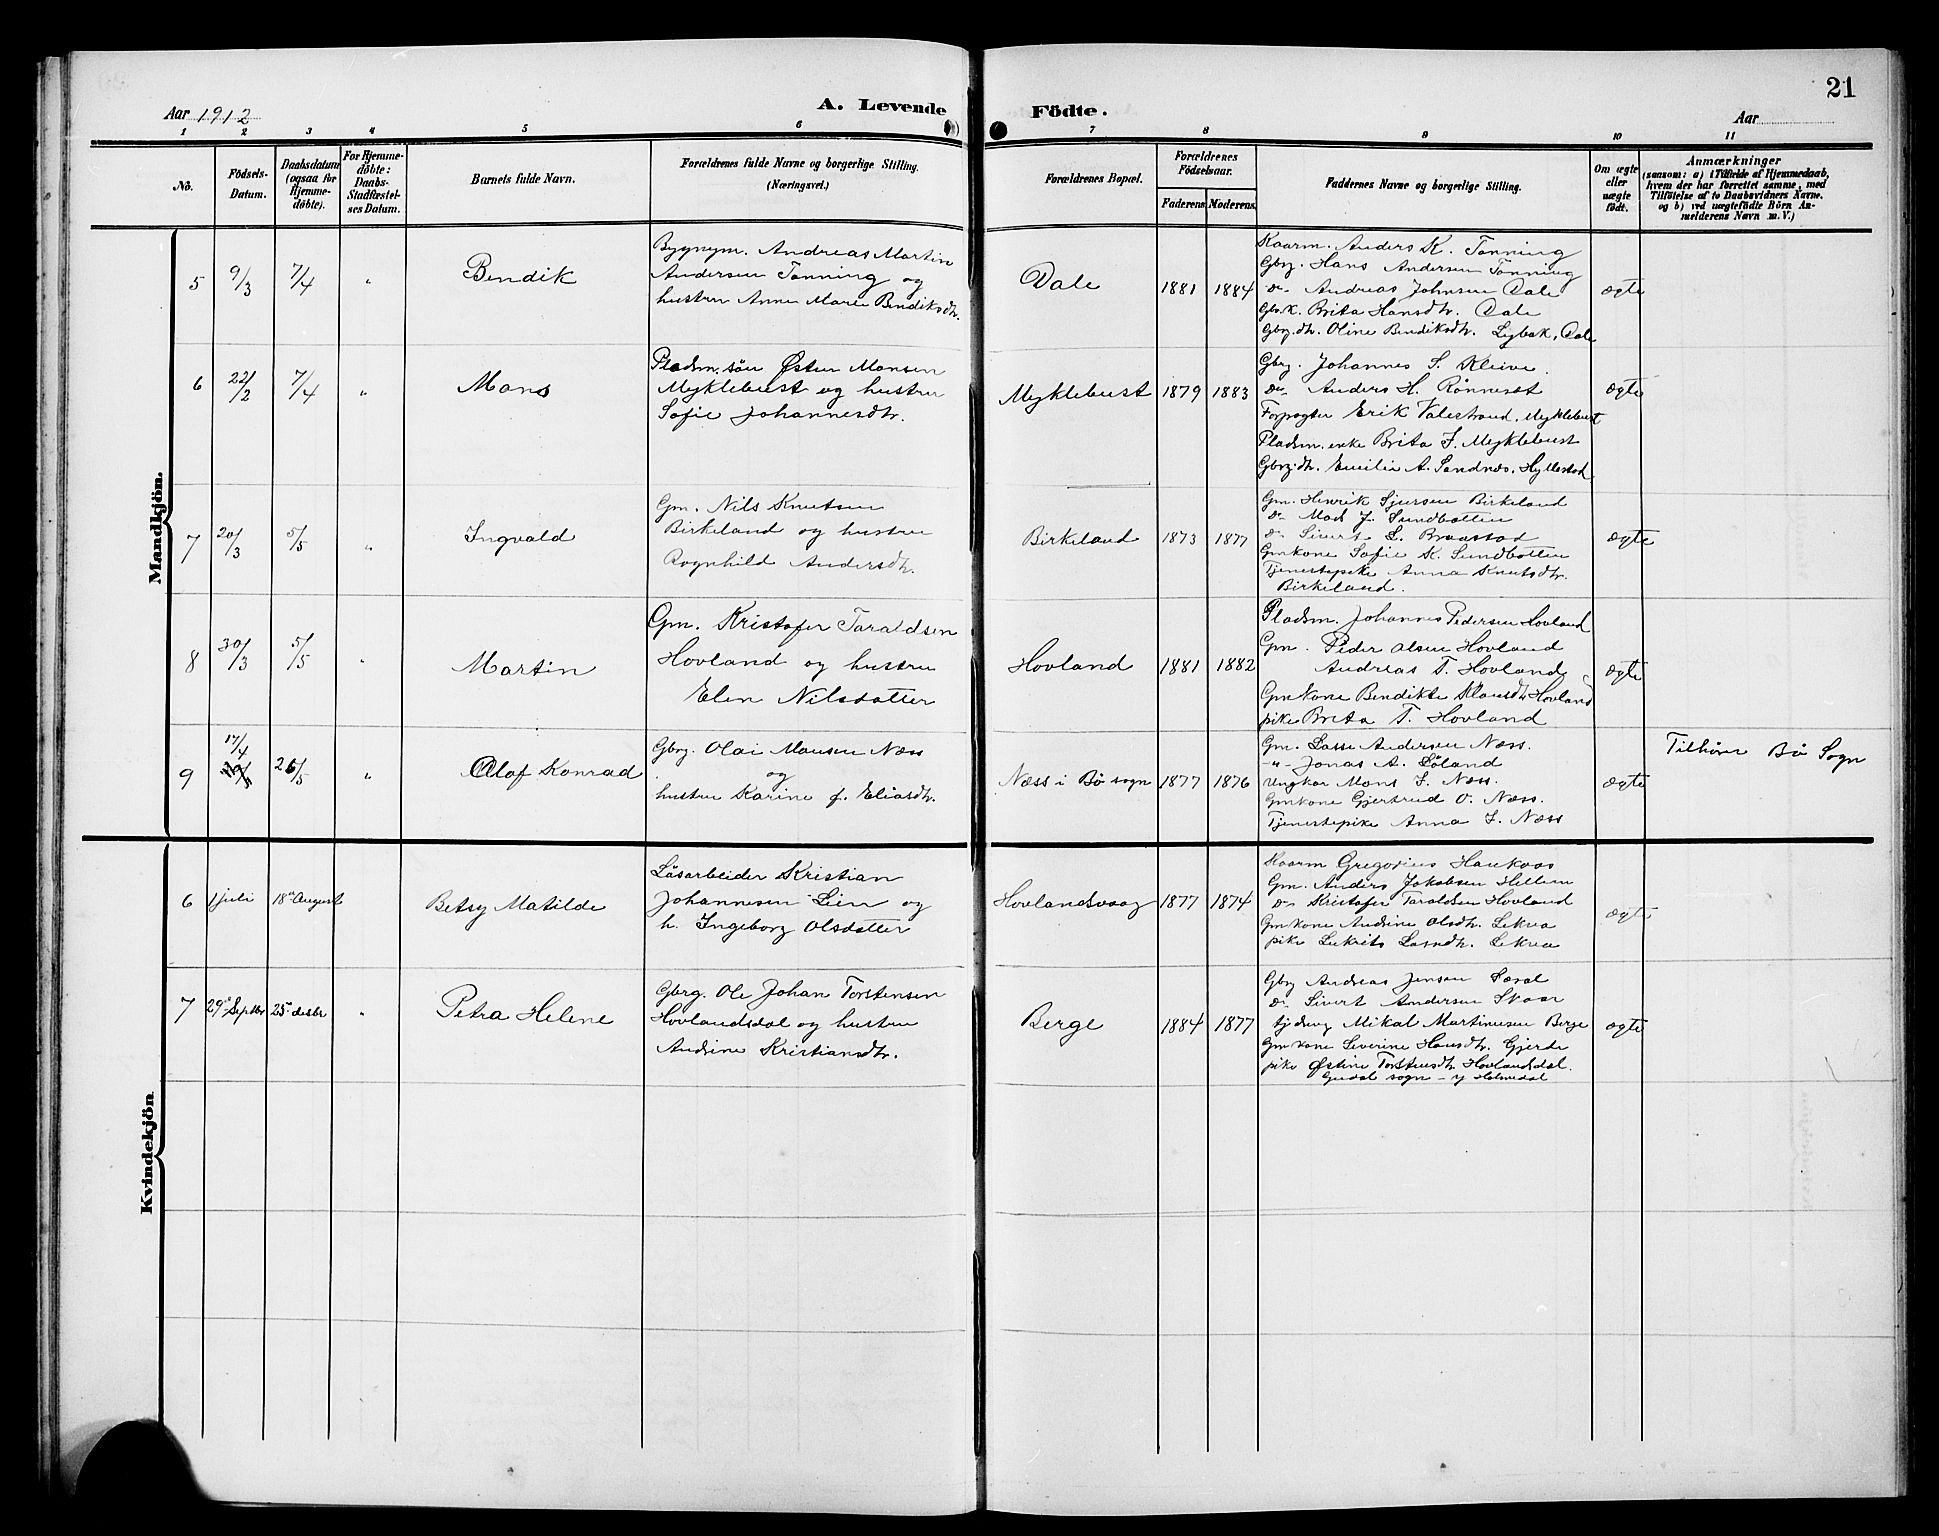 21
Aar 1912
A. Levende Födte.
Aar
1 2 3 4 5 6 7 8 9 10 11
No.
Födsels-Datum.
Daabsdatum (ogsaa for Hjemme-döbte).
For Hjemme-döbte: Daabs-Stadfæstel-ses Datum.
Barnets fulde Navn.
Forældrenes fulde Navne og borgerlige Stilling.
(Næringsvei.)
Forældrenes Bopæl.
Forældrenes Födselsaar.
Faderens Moderens
Faddernes Navne og borgerlige Stilling.
Om ægte eller uægte födt.
Anmærkninger
(saasom: a) i Tilfælde af Hjemmedaab,
hvem der har forrettet samme, med
Tilföielse af to Daabsvidners Navne.
og b) ved uægtefödte Börn An-
melderens Navn m. V.)
Mandkjön.
5 9/3 7/4 " Bendik
Bygnym. Andreas Martin
Andersen Tonning og
hustru Anne Marie Bendiksdtr.
Dale 1881 1884
Kaarm. Anders K. Tonning
Gbrg. Hans Andersen Tonning
Do Andreas Johnsen Dale
Gbr.k. Brita Hansdtr. Dale
Gbrg.dtr. Oline Bendiksdtr. Lybak, Dale
ægte
6 22/2 7/4 " Mons
Pladsm. sön Østen Monsen
Myklebust og hustru
Sofie Johannesdtr.
Myklebust 1879 1883
Gbrg. Johannes S. Kleive.
Do Anders H. Rönneset
Forpagter Erik Valestrand, Myklebust
Pladsm. enke Brita J. Myklebust
Gbrg.dtr. Emilie A. Sandnes, Hyllestad
ægte
7 20/3 5/5 " Ingvald
Gm. Nils Knutsen
Birkeland og hustru
Rognhild Andersdtr.
Birkeland 1873 1877
Gm. Henrik Sjursen Birkeland
Do Mads J. Sundbotten
Do Sivert L. Braastad
Gmkone Sofie K. Sundbotten
Tjenestepike Anna Knutsdtr.
Birkeland.
ægte
8 30/3 5/5 " Martin
Gm. Kristofer Taraldsen
Hovland og hustru
Elen Nilsdatter
Hovland 1881 1882
Pladsm. Johannes Pedersen Hovland
Gm. Peder Olsen Hovland
Andreas T. Hovland
Gmkone Bendikte Klausdtr Hovland
pike Brita T. Hovland
ægte
9 17/4 26/5 " Olaf Konrad
Gbrg. Olai Monsen Næss
og
hustru Karine f. Eliasdtr.
Næss i Bö sogn 1877 1876
Gm. Lasse Andersen Næss.
-"- Jonas A. Söland
Ungkar Mons J. Næss.
Gmkone Gjertrud O. Næss.
Tjenestepike Anna J. Næss
ægte
Tilhörer Bö Sogn
Kvindekjön.
6 1 juli 18de August Betsy Matilde
Lösarbeider Kristian
Johannesen Lien og
h. Ingeborg Olsdatter
Hovlandsvaag 1877 1874
Kaarm Gregorius Haukaas
Gm. Anders Jakobsen Hellem
Do Kristofer Taraldsen Hovland
Gmkone Andrine Olsdtr. Lekva
pike Lasedtr. Lekva
ægte
7 29de Septbr 25de desbr " Petra Helene
Gbrg. Ole Johan Torstensen
Hovlandsdal og hustru
Andrine Kristiansdtr.
Berge 1884 1877
Gbrg Andreas Jensen
Do Sivert Andersen Skaar
Mikal Martinusen Berge
Gmkone Severine Hansdtr. Gjerde
pike Østine Torstensdtr Hovlandsdal.
Guddal sogn - y Holmedal
ægte